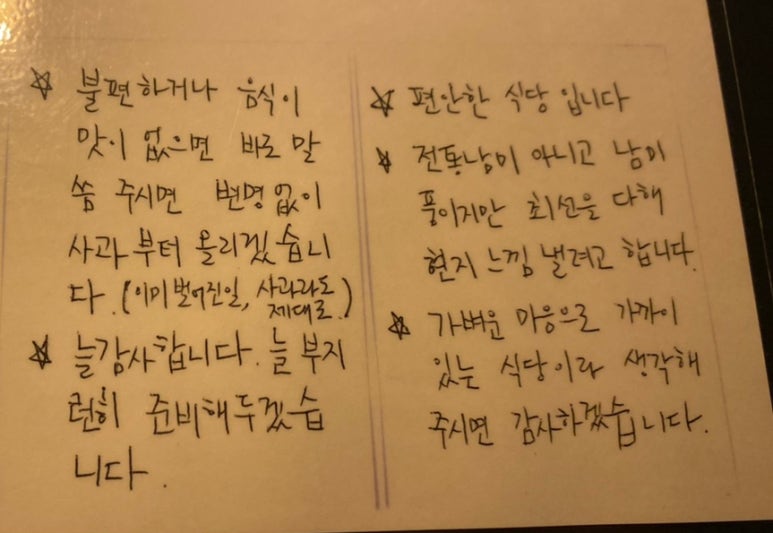 ☆ 불편하거나 음식이
맛이 없으면 바로 말
씀 주시면 변명없이
사과부터 올리겠습니
다.(이미 벌어진일, 사과라도
제대로.)
☆ 늘감사합니다. 늘 부지
런히 준비해두겠습
니다.
☆ 편안한 식당입니다
☆ 전통남미 아니고 남미
풍이지만 최선을 다해
현지느낌 낼려고 합니다.
☆ 가벼운 마음으로 가까이
있는 식당이라 생각해
주시면 감사하겠습니다.